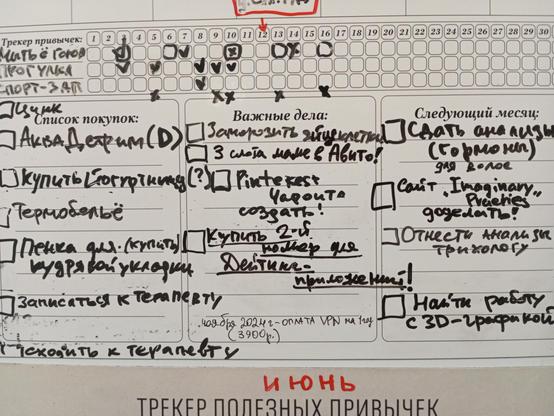 Трекер привычек: 1 2 3 4 5 6 7 8 9 10 11 12 13 14 15 16 17 18 19 20 21 22 23 24 25 26 27 28 29 30
Мытьё голов
Прогулка
Спорт-зал
Цинк
Список покупок:
АкваДетрим (D)
Купить йогуртницу (?)
Термобельё
Пенка для (купить)
кудрявой укладки
Записаться к терапевту
сходить к терапевту
Важные дела:
Заморозить яйцеклетки
3 слота маме в Авито!
Pinterest
создать!
Купить 2-й
номер для
Дейтинг-
приложений!
ноября 2024г-оплата VPN на 1 год
(3900р.)
Следующий месяц:
Сдать анализы
(гормоны)
для волос
Сайт "Imaginary
доделать!
Отнести анализы
трихологу
Найти работу
с 3D-графикой
июнь
ТРЕКЕР ПОЛЕЗНЫХ ПРИВЫЧЕК